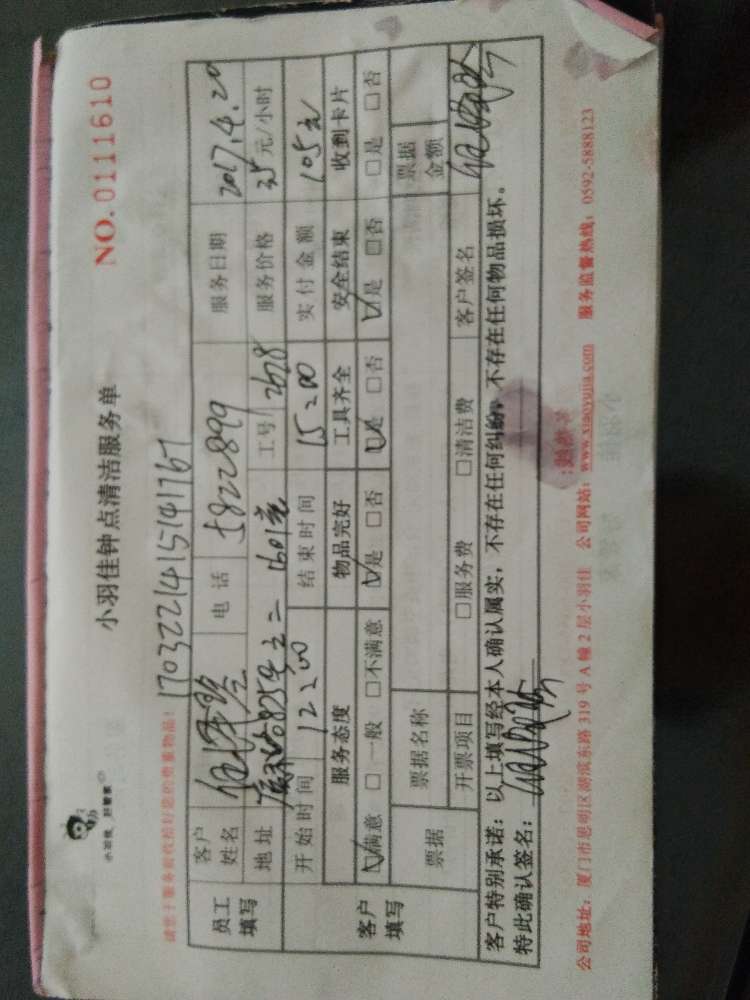 小羽佳 好管家
小羽佳钟点清洁服务单
NO.0111610
请您于服务前收拾好您的贵重物品!
17032214151411767
员工填写 客户姓名 电话 5822899 服务日期 2017.4.20
地址 工号 2628 服务价格 35元/小时
开始时间 12:00 结束时间 15:00 实付金额 105元
客户填写 服务态度 物品完好 工具齐全 安全结束 收到卡片
☑满意 □一般 □不满意 ☑是 □否 ☑是 □否 ☑是 □否 □是 □否
票据 票据名称 票据金额
开票项目 □服务费 □清洁费 客户签名
客户特别承诺:以上填写经本人确认属实,不存在任何纠纷,不存在任何物品损坏。
特此确认签名:
公司地址:厦门市思明区湖滨东路319号A幢2层小羽佳 公司网站:www.xiaoyujia.com 服务监督热线:0592-5888123